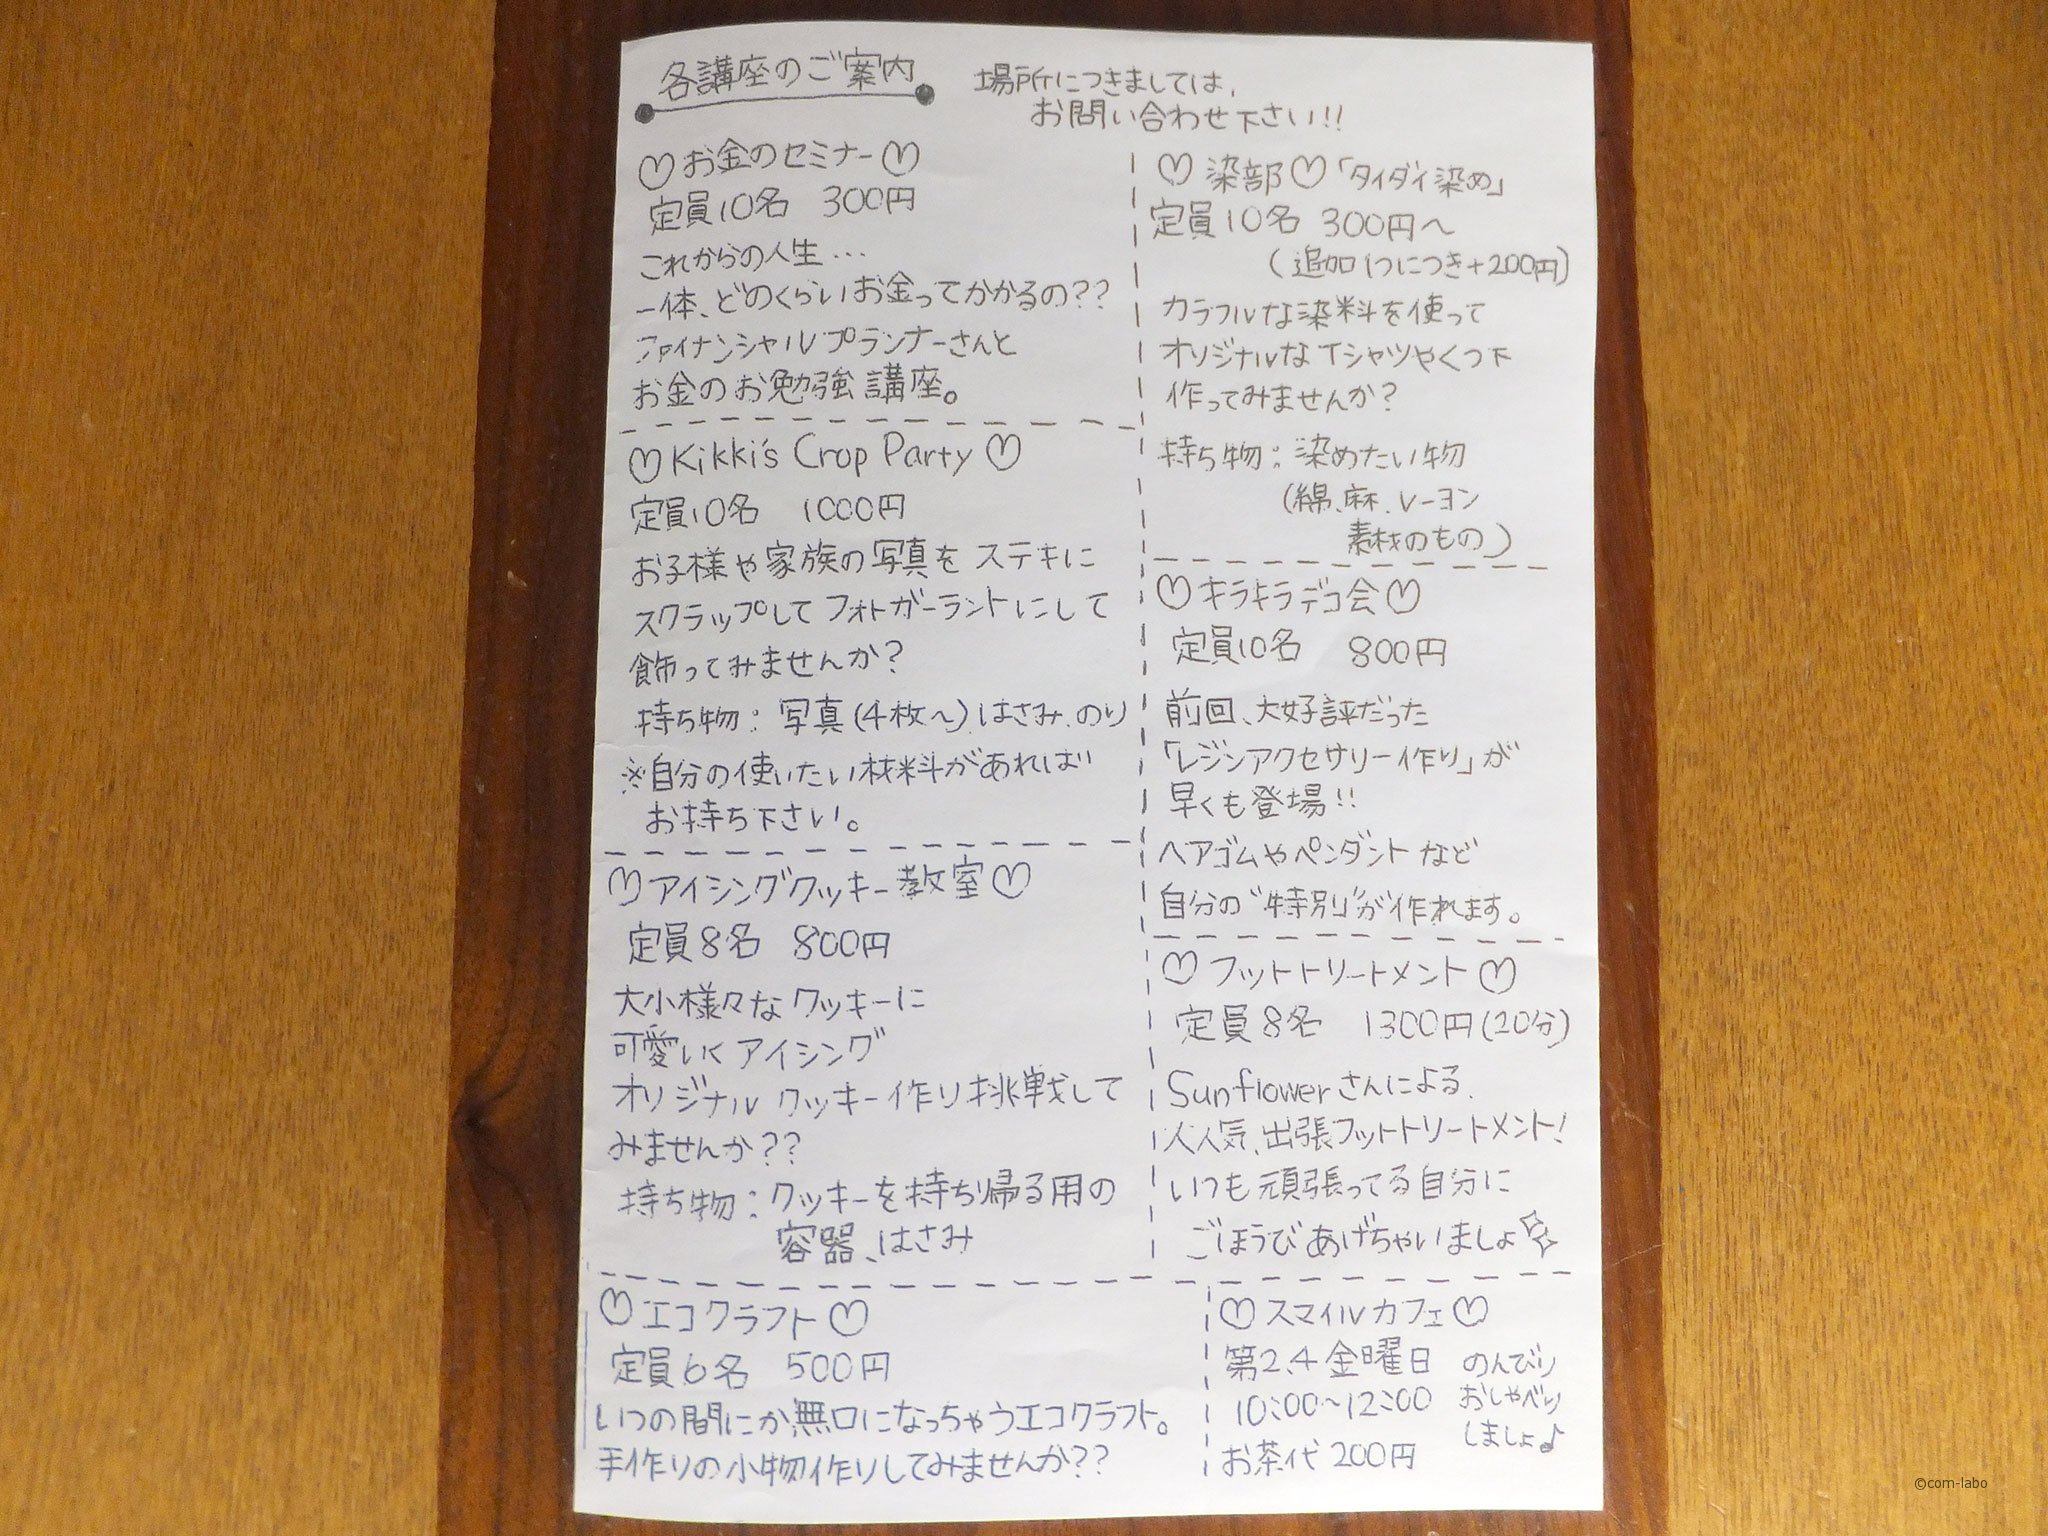 各講座のご案内
場所につきましては、
お問い合わせ下さい!!
♡お金のセミナー♡
定員10名 300円
これからの人生…
一体、どのくらいお金ってかかるの??
ファイナンシャルプランナーさんと
お金のお勉強講座。
♡Kikki's Crop Party♡
定員10名 1000円
お子様や家族の写真をステキに
スクラップしてフォトガーラントにして
飾ってみませんか?
持ち物:写真(4枚〜)、はさみ、のり
※自分の使いたい材料があれば
お持ち下さい。
♡アイシングクッキー教室♡
定員8名 800円
大小様々なクッキーに
可愛いくアイシング
オリジナルクッキー作り挑戦して
みませんか??
持ち物:クッキーを持ち帰る用の
容器、はさみ
♡エコクラフト♡
定員6名 500円
いつの間にか無口になっちゃうエコクラフト。
手作りの小物作りしてみませんか??
♡染部♡「タイダイ染め」
定員10名 300円〜
(追加1つにつき+200円)
カラフルな染料を使って
オリジナルなTシャツやくつ下
作ってみませんか?
持ち物:染めたい物
(綿、麻、レーヨン
素材のもの)
♡キラキラデコ会♡
定員10名 800円
前回、大好評だった
「レジンアクセサリー作り」が
早くも登場!!
ヘアゴムやペンダントなど
自分の"特別"が作れます。
♡フットトリートメント♡
定員8名 1300円(20分)
Sunflowerさんによる、
大人気、出張フットトリートメント!
いつも頑張ってる自分に
ごほうびあげちゃいましょ
♡スマイルカフェ♡
第2、4金曜日
10:00〜12:00
お茶代200円
のんびり
おしゃべり
しましょ♪
©com-labo